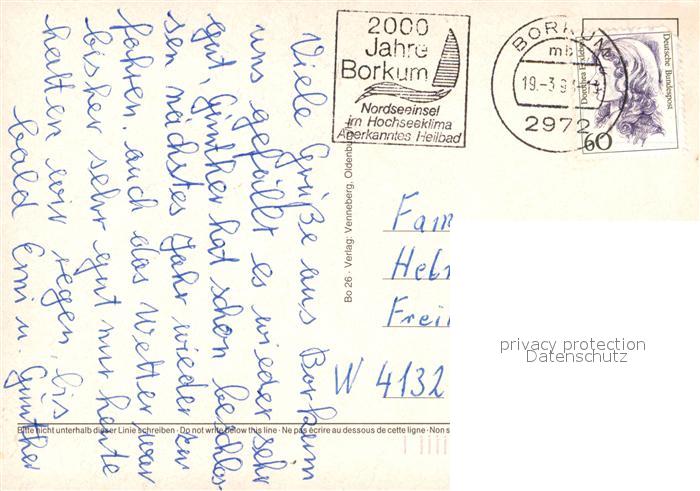 Viele Grüße aus Borkum
uns gefällt es wieder sehr
gut, Günther hat schon beschlos-
sen nächstes Jahr wieder zu
fahren. auch das Wetter war
bisher sehr gut nur heute
hatten wir regen, bis
bald Erni u. Günther
2000
Jahre
Borkum
Nordseeinsel
im Hochseeklima
Anerkanntes Heilbad
BORKUM
mb
19.-3.9
2972
Deutsche Bundespost
Dorothea Erxleben
60
Bo 26 · Verlag: Venneberg, Oldenburg
Fam
Helm
Frei
W 4132
privacy protection
Datenschutz
Bitte nicht unterhalb dieser Linie schreiben · Do not write below this line · Ne pas écrire au dessous de cette ligne · Non s